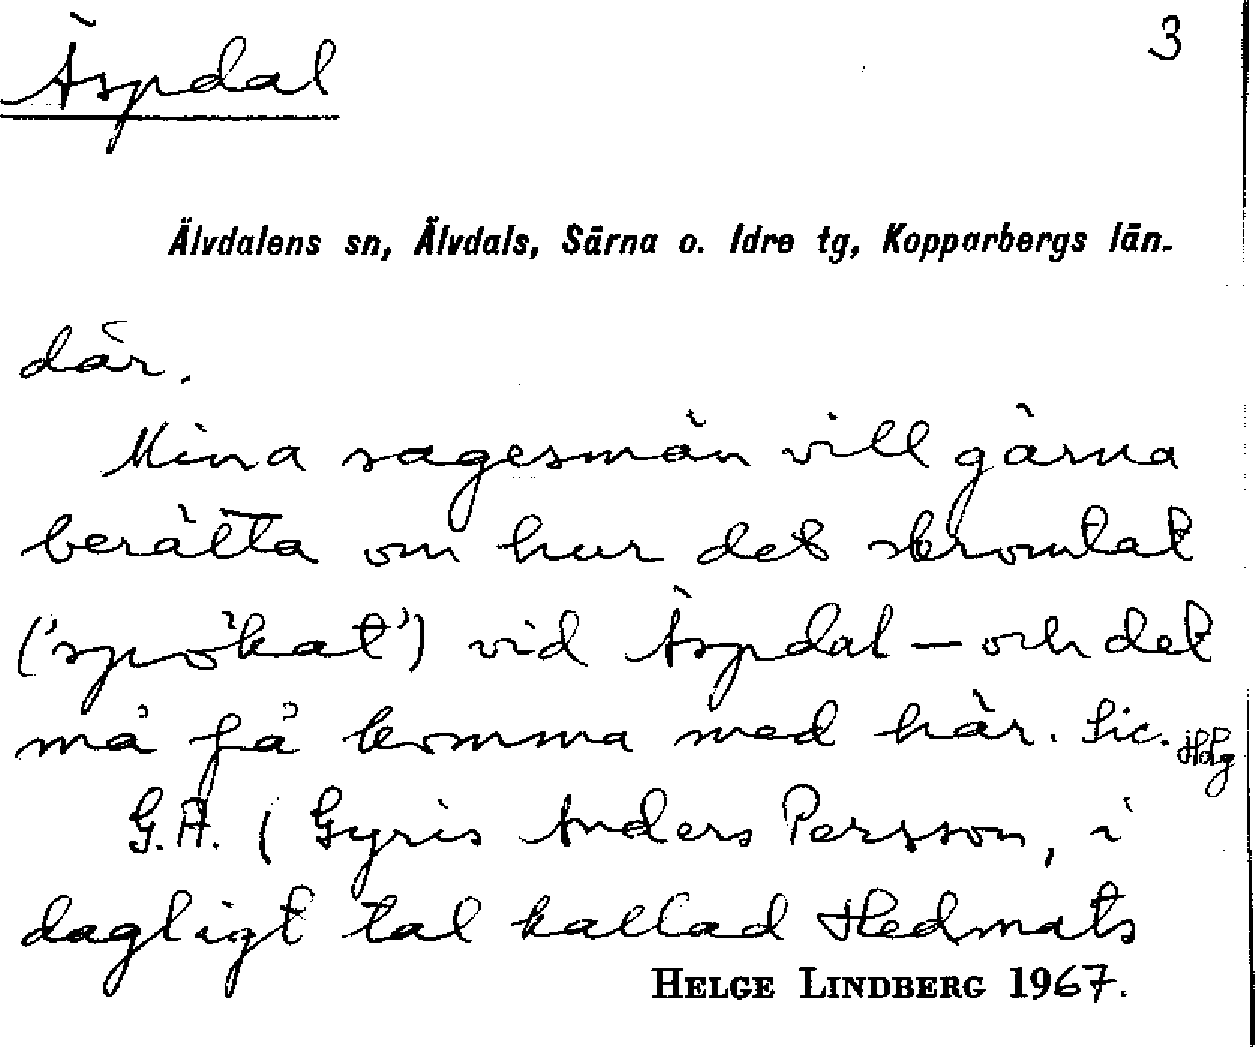 Äspdal
3
Älvdalens sn, Älvdals, Särna o. Idre tg, Kopparbergs län.
där.
Mina sagesmän vill gärna
berätta om hur det skromlat
('spökat') vid Äspdal – och det
må få komma med här. Sic. Hdg
G.A. (Gyris Anders Persson, i
dagligt tal kallad Hedmats
HELGE LINDBERG 1967.